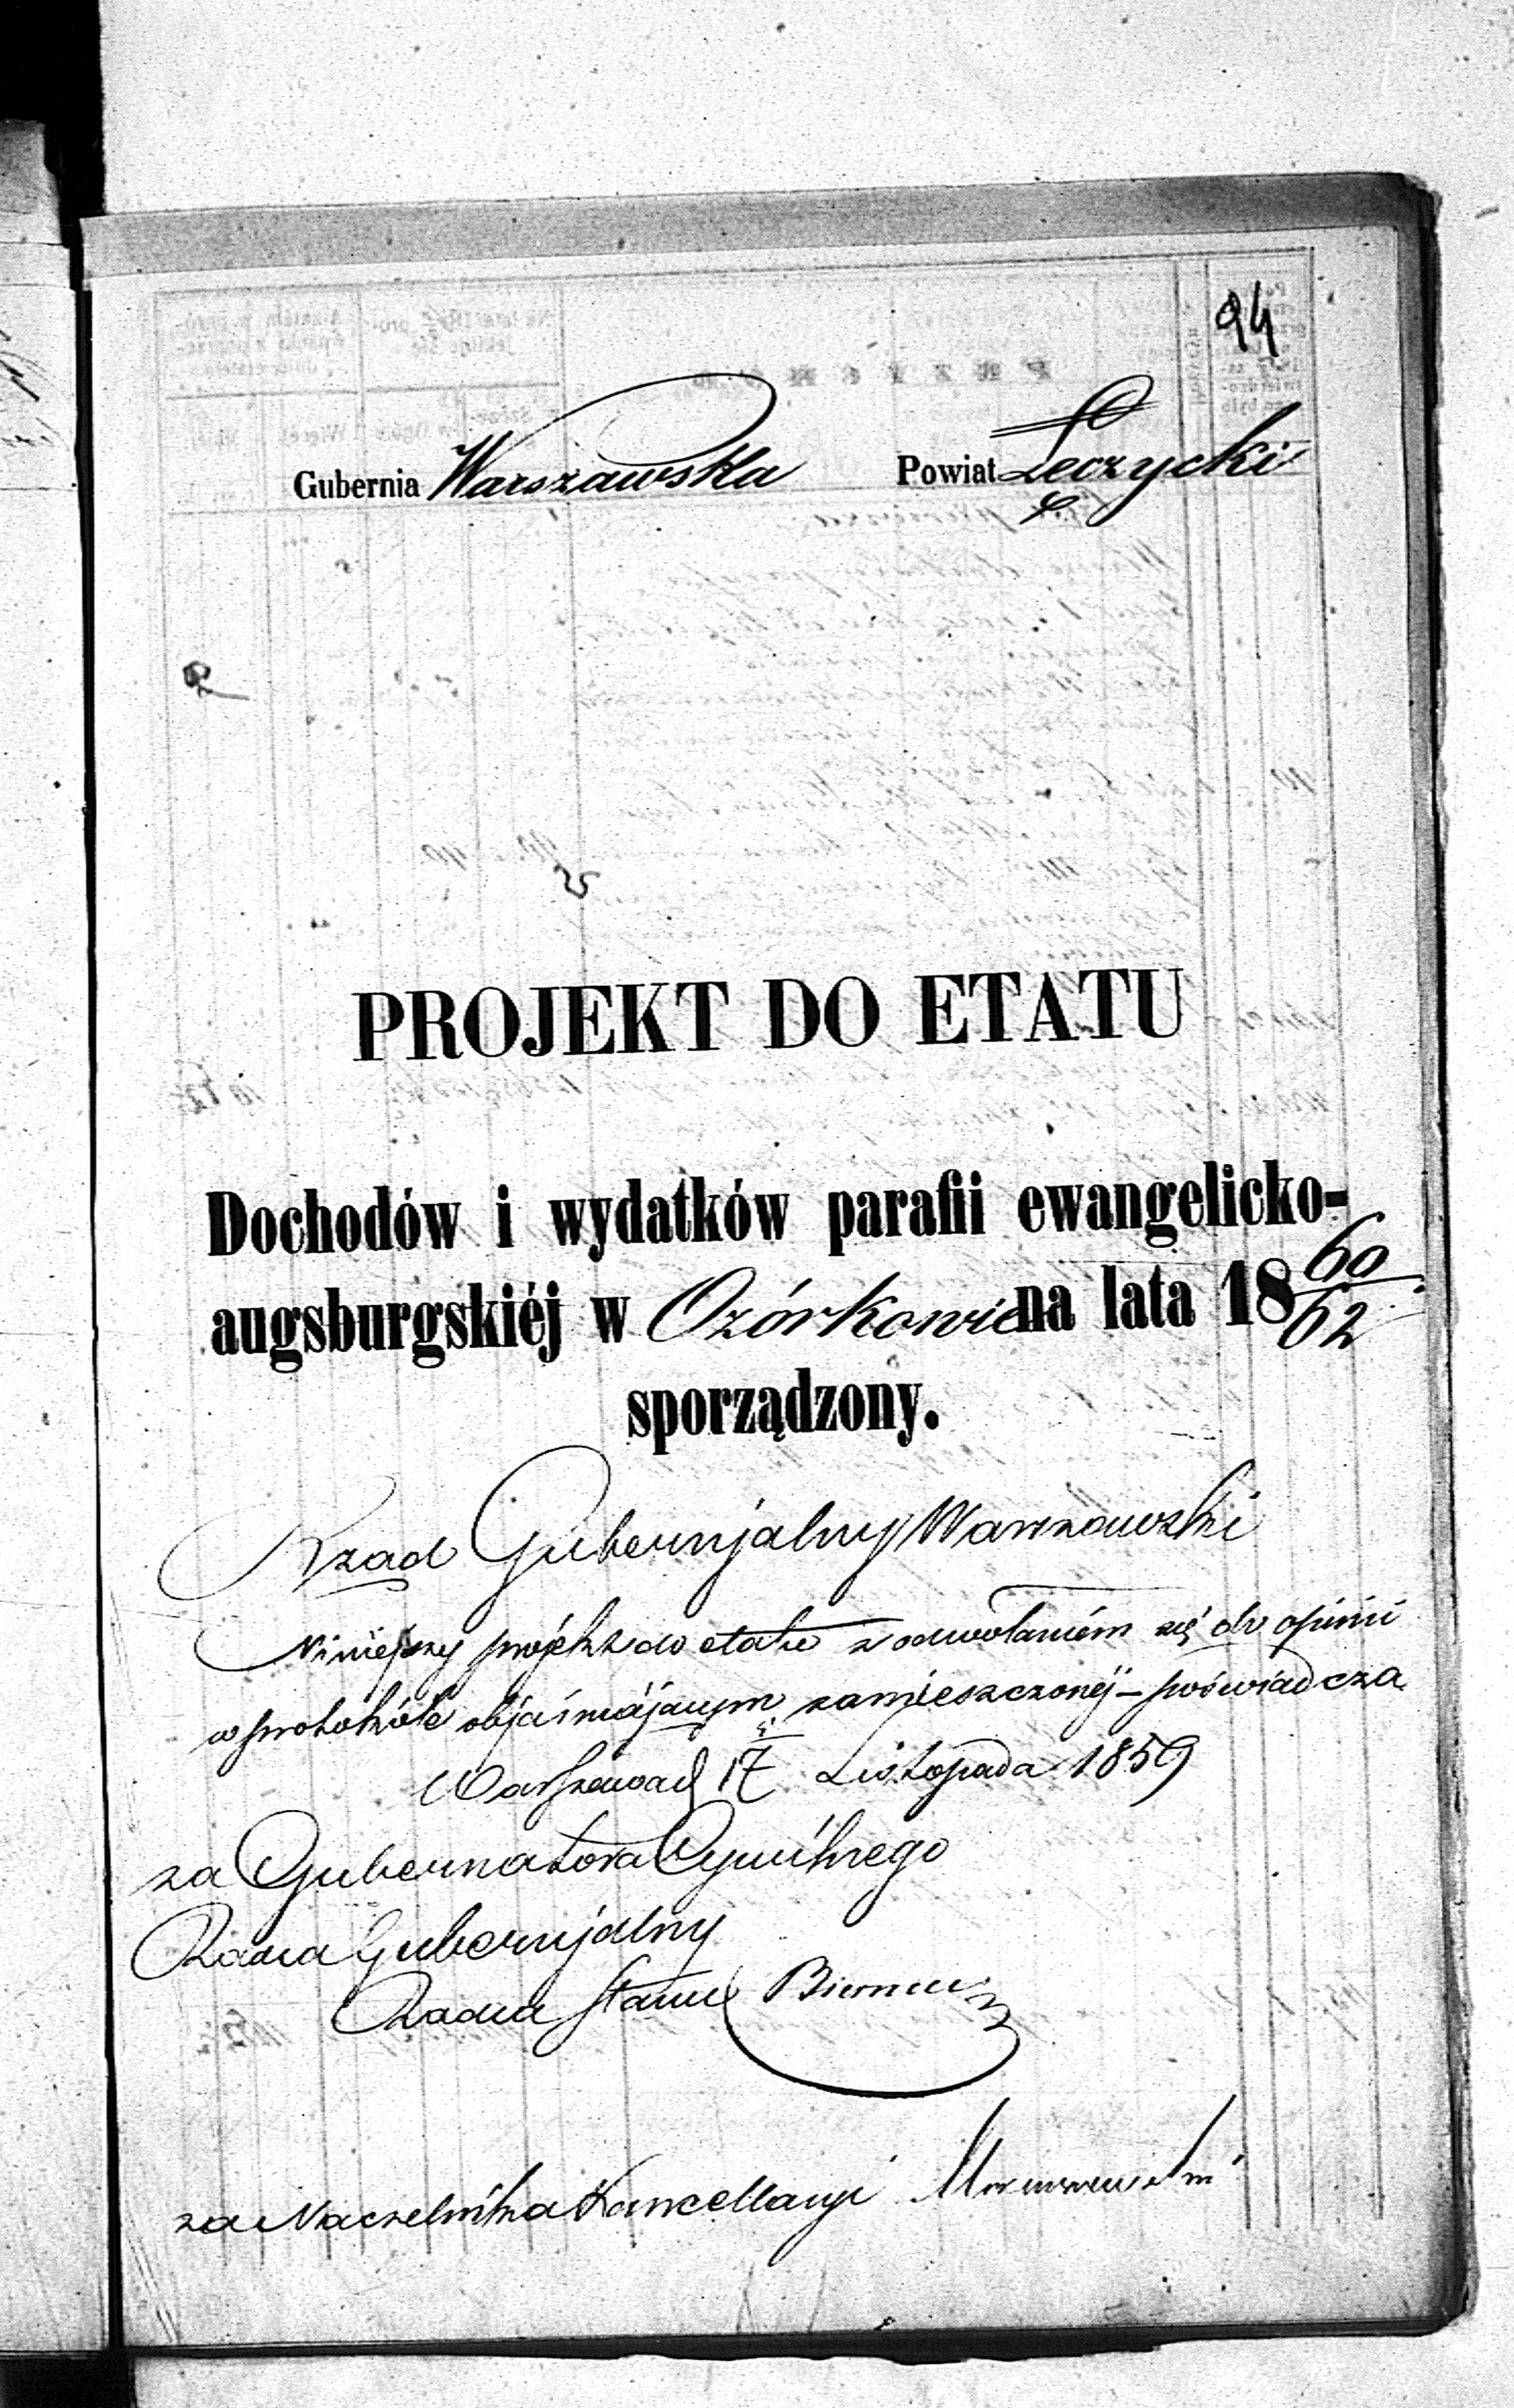 94
Gubernia Warszawska Powiat Łęczycki
PROJEKT DO ETATU
Dochodów i wydatków parafii ewangelicko-
augsburgskiéj w Ozórkowie na lata 18 60/62
sporządzony.
Rząd Gubernjalny Warszawski
Niniejszy projekt do etatu z odwołaniem się do opinii
w protokóle objaśniającym zamieszczonéj – poświadcza
Warszawa d 17 Listopada 1859
za Gubernatora Cywilnego
Radca Gubernjalny
Radca Stanu
za Naczelnika Kancellaryi